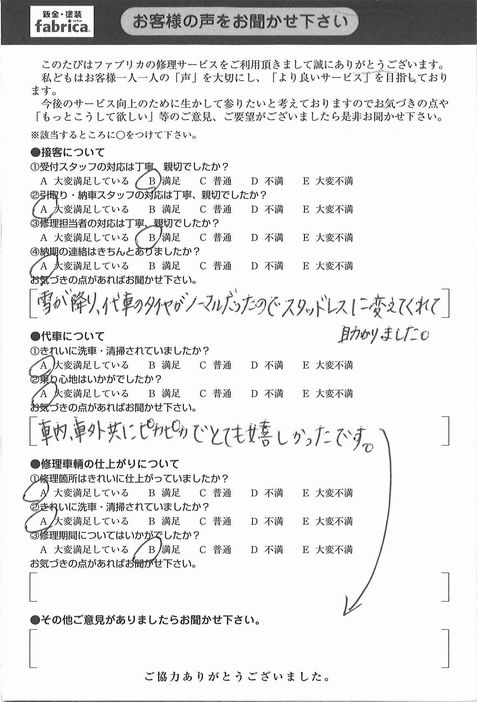 鈑金・塗装
fabrica.
お客様の声をお聞かせ下さい
このたびはファブリカの修理サービスをご利用頂きまして誠にありがとうございます。
私どもはお客様一人一人の「声」を大切にし、「より良いサービス」を目指しており
ます。
今後のサービス向上のために生かして参りたいと考えておりますのでお気づきの点や
「もっとこうして欲しい」等のご意見、ご要望がございましたら是非お聞かせ下さい。
※該当するところに○をつけて下さい。
●接客について
①受付スタッフの対応は丁寧、親切でしたか?
A 大変満足している B 満足 C 普通 D 不満 E 大変不満
②引取り・納車スタッフの対応は丁寧、親切でしたか?
A 大変満足している B 満足 C 普通 D 不満 E 大変不満
③修理担当者の対応は丁寧、親切でしたか?
A 大変満足している B 満足 C 普通 D 不満 E 大変不満
④納期の連絡はきちんとありましたか?
A 大変満足している B 満足 C 普通 D 不満 E 大変不満
お気づきの点があればお聞かせ下さい。
雪が降り、代車のタイヤがノーマルだったのでスタッドレスに変えてくれて
助かりました。
●代車について
①きれいに洗車・清掃されていましたか?
A 大変満足している B 満足 C 普通 D 不満 E 大変不満
②乗り心地はいかがでしたか?
A 大変満足している B 満足 C 普通 D 不満 E 大変不満
お気づきの点があればお聞かせ下さい。
車内、車外共にピカピカでとても嬉しかったです。
●修理車輛の仕上がりについて
①修理箇所はきれいに仕上がっていましたか?
A 大変満足している B 満足 C 普通 D 不満 E 大変不満
②きれいに洗車・清掃されていましたか?
A 大変満足している B 満足 C 普通 D 不満 E 大変不満
③修理期間についてはいかがでしたか?
A 大変満足している B 満足 C 普通 D 不満 E 大変不満
お気づきの点があればお聞かせ下さい。
●その他ご意見がありましたらお聞かせ下さい。
ご協力ありがとうございました。